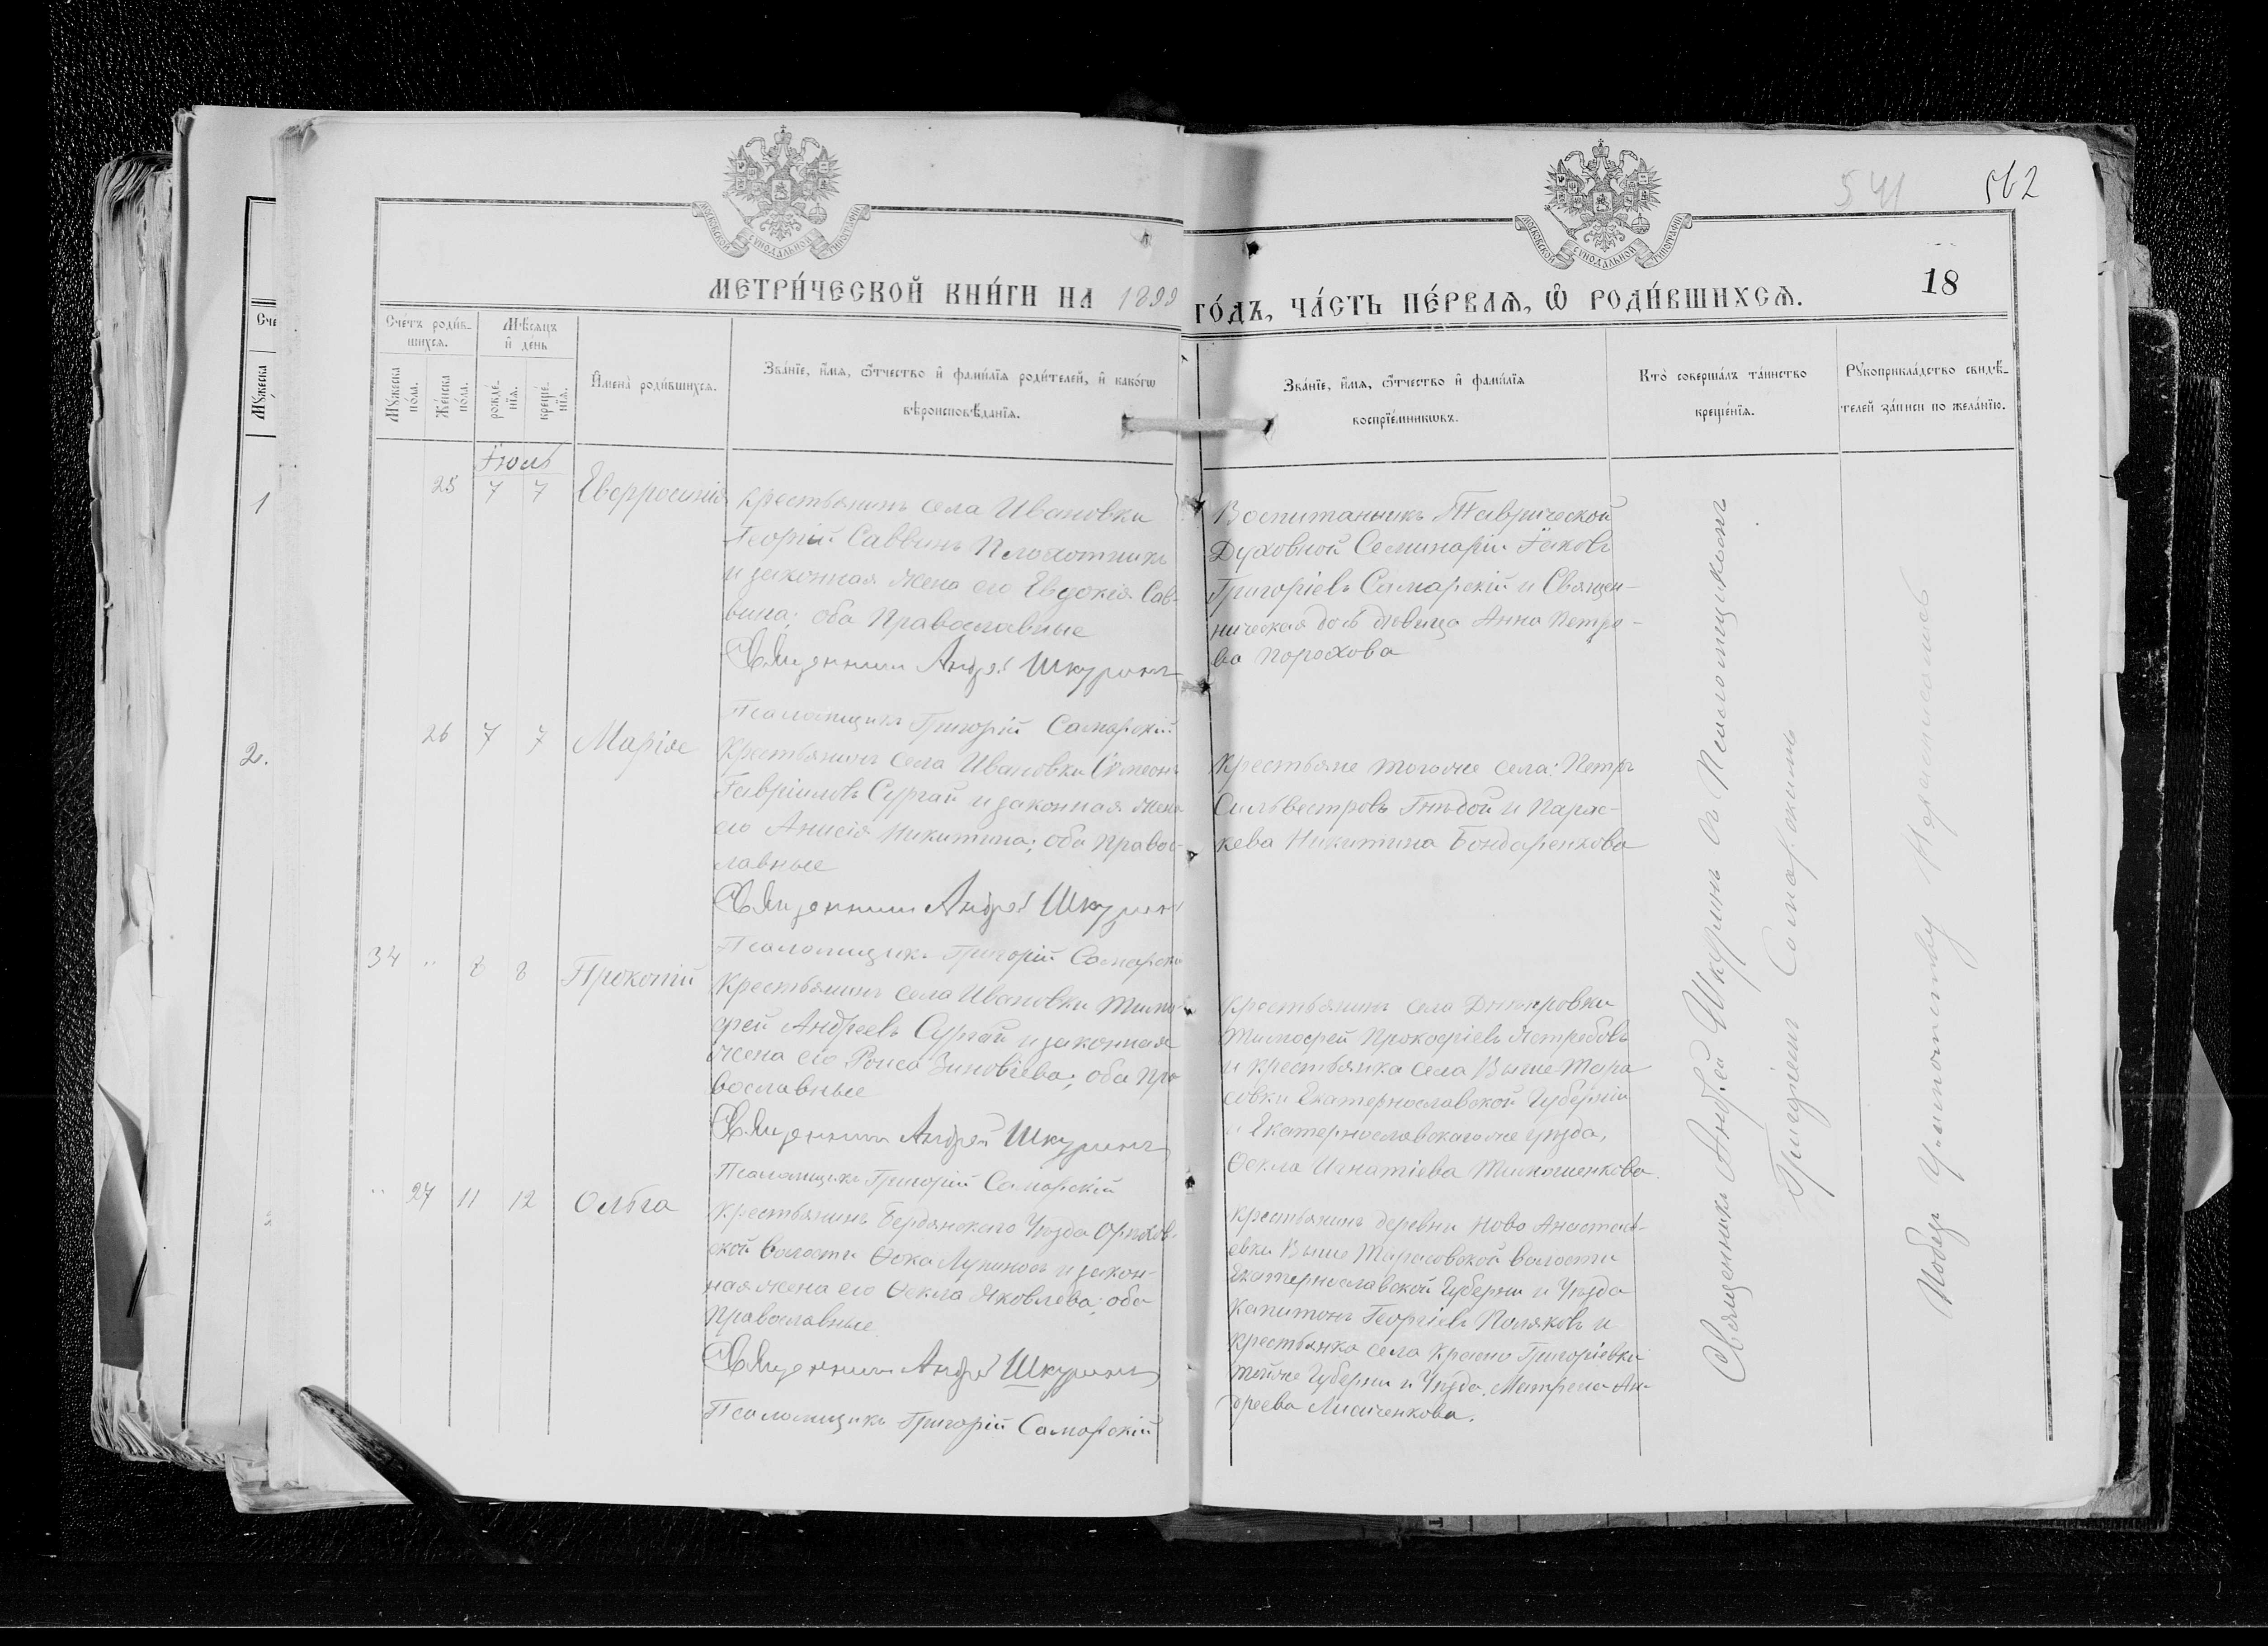 МОСКОВСКОЙ СУНОДАЛЬНОЙ ТИПОГРАФІИ
МОСКОВСКОЙ СУНОДАЛЬНОЙ ТИПОГРАФІИ
541 562
МЕТРИ́ЧЕСКОЙ КНИ́ГИ НА 1899 ГО́ДЪ, ЧА́СТЬ ПЕ́РВАѦ, Ѡ҆ РОДИ́ВШИХСѦ.
18
Сче́тъ роди́в-
шихсѧ.
Мꙋ́жеска по́ла.
Же́нска по́ла.
Мѣ́сѧцъ и҆ де́нь
рожде́-нїѧ.
креще́-нїѧ.
И҆мена̀ роди́вшихсѧ.
Зва́нїе, и҆́мѧ, ѻ҆́тчество и҆ фами́лїѧ роди́телей, и҆ како́гѡ
вѣроисповѣ́данїѧ.
Зва́нїе, и҆́мѧ, ѻ҆́тчество и҆ фами́лїѧ
воспрїе́мникѡвъ.
Кто̀ соверша́лъ та́инство
креще́нїѧ.
Рꙋкоприкла́дство свидѣ́-
телей за́писи по жела́нїю.
Сче
Мꙋжеска
1
2.
Іюль
25 7 7 Евфросинія
крестьянинъ села Ивановки
Георгій Саввинъ Плохотникъ
и законная жена его Евдокія Сав-
вина; оба Православные
Священникъ Андрей Шкуринъ
Псаломщикъ Григорій Самарскій
Воспитанникъ Таврической
Духовной Семинаріи Іаковъ
Григоріевъ Самарскій и Священ-
ническая дочь дѣвица Анна Петро-
ва Порохова
26 7 7 Марія
Крестьянинъ села Ивановки Симеонъ
Гавріиловъ Сургай и законная жена
его Анисія Никитина; оба Правос-
лавные
Священникъ Андрей Шкуринъ
Псаломщикъ Григорій Самарскій
Крестьяне тогоже села: Петръ
Сильвестровъ Гнѣдой и Парас-
кева Никитина Бондаренкова
34 " 8 8 Прокопій
Крестьянинъ села Ивановки Тимо-
фей Андреевъ Сургай и законная
жена его Раиса Зиновіева; оба Пра
вославные
Священникъ Андрей Шкуринъ
Псаломщикъ Григорій Самарскій
Крестьянинъ села Днѣпровки
Тимофей Прокофіевъ Ястребовъ
и крестьянка села Выше-Тара
совки Екатеринославской Губерніи
и Екатеринославскагоже уѣзда,
Ѳекла Игнатіева Тимошенкова.
" 27 11 12 Ольга
Крестьянинъ Бердянскаго Уѣзда Орѣхов-
ской волости Ѳока Лукиновъ и закон-
ная жена его Ѳекла Яковлева; оба
Православные.
Священникъ Андрей Шкуринъ
Псаломщикъ Григорій Самарскій
Крестьянинъ деревни Ново Анастась-
евки Выше Тарасовской волости
Екатеринославской Губерни и Уѣзда
Капитонъ Георгіевъ Поляковъ и
крестьянка села Красно Григорьевки
тойже Губерни и Уѣзда, Матрена Ан-
дреева Лисиченкова.
Священникъ Андрей Шкуринъ съ Псаломщикомъ
Григоріемъ Самарскимъ